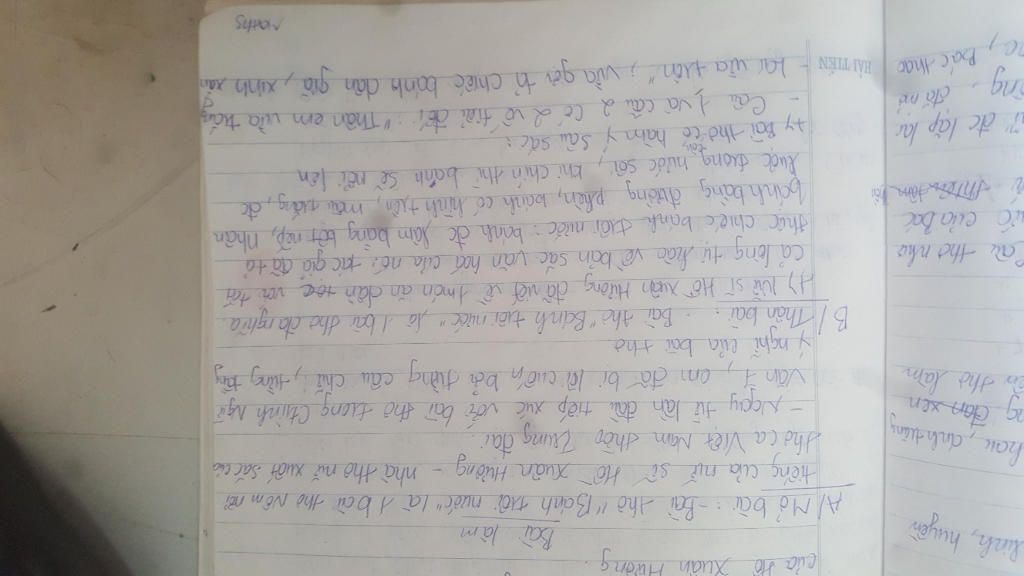 của Hồ Xuân Hương.
Bài làm
A/ Mở bài: - Bài thơ "Bánh trôi nước" là 1 bài thơ Nôm nổi
tiếng của nữ sĩ Hồ Xuân Hương - nhà thơ nữ xuất sắc của
thơ ca Việt Nam thời Trung đại.
- Ngay từ lần đầu tiếp xúc với bài thơ trong chương Ngữ
văn 7, em đã bị lôi cuốn bởi từng câu chữ, từng tầng
ý nghĩ của bài thơ
B/ Thân bài: - Bài thơ "Bánh trôi nước" là 1 bài thơ đa nghĩa.
+) Nữ sĩ Hồ Xuân Hương đã viết về 1 món ăn dân tộc với tất
cả lòng tự hào về bản sắc văn hoá của nó: tác giả đã tả
thực chiếc bánh trôi nước: bánh đc làm bằng bột nếp, nhân
bánh bằng đường phên, bánh có hình tròn, màu trắng, đc
luộc trong nước sôi, khi chín thì bánh sẽ nổi lên
+) Bài thơ còn có hàm ý sâu sắc:
- Câu 1 và câu 2 có 2 vế tiểu đối: "Thân em vừa trắng
- lại vừa tròn"; vừa gợi tả chiếc bánh dân giã, xinh xắn
HẢI TIẾN
Maths
linh, huyền
hau, anh trăng
đan xen
thơ làm
câu thơ như
của Bác
đc lặp lại
đã mở
Bác thao